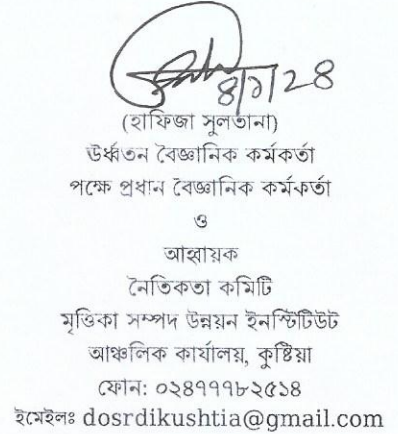 ৪/১/২৪
(হাফিজা সুলতানা)
উর্ধ্বতন বৈজ্ঞানিক কর্মকর্তা
পক্ষে প্রধান বৈজ্ঞানিক কর্মকর্তা
ও
আহ্বায়ক
নৈতিকতা কমিটি
মৃত্তিকা সম্পদ উন্নয়ন ইনস্টিটিউট
আঞ্চলিক কার্যালয়, কুষ্টিয়া
ফোন: ০২৪৭৭৭৮২৫১৪
ইমেইলঃ dosrdikushtia@gmail.com